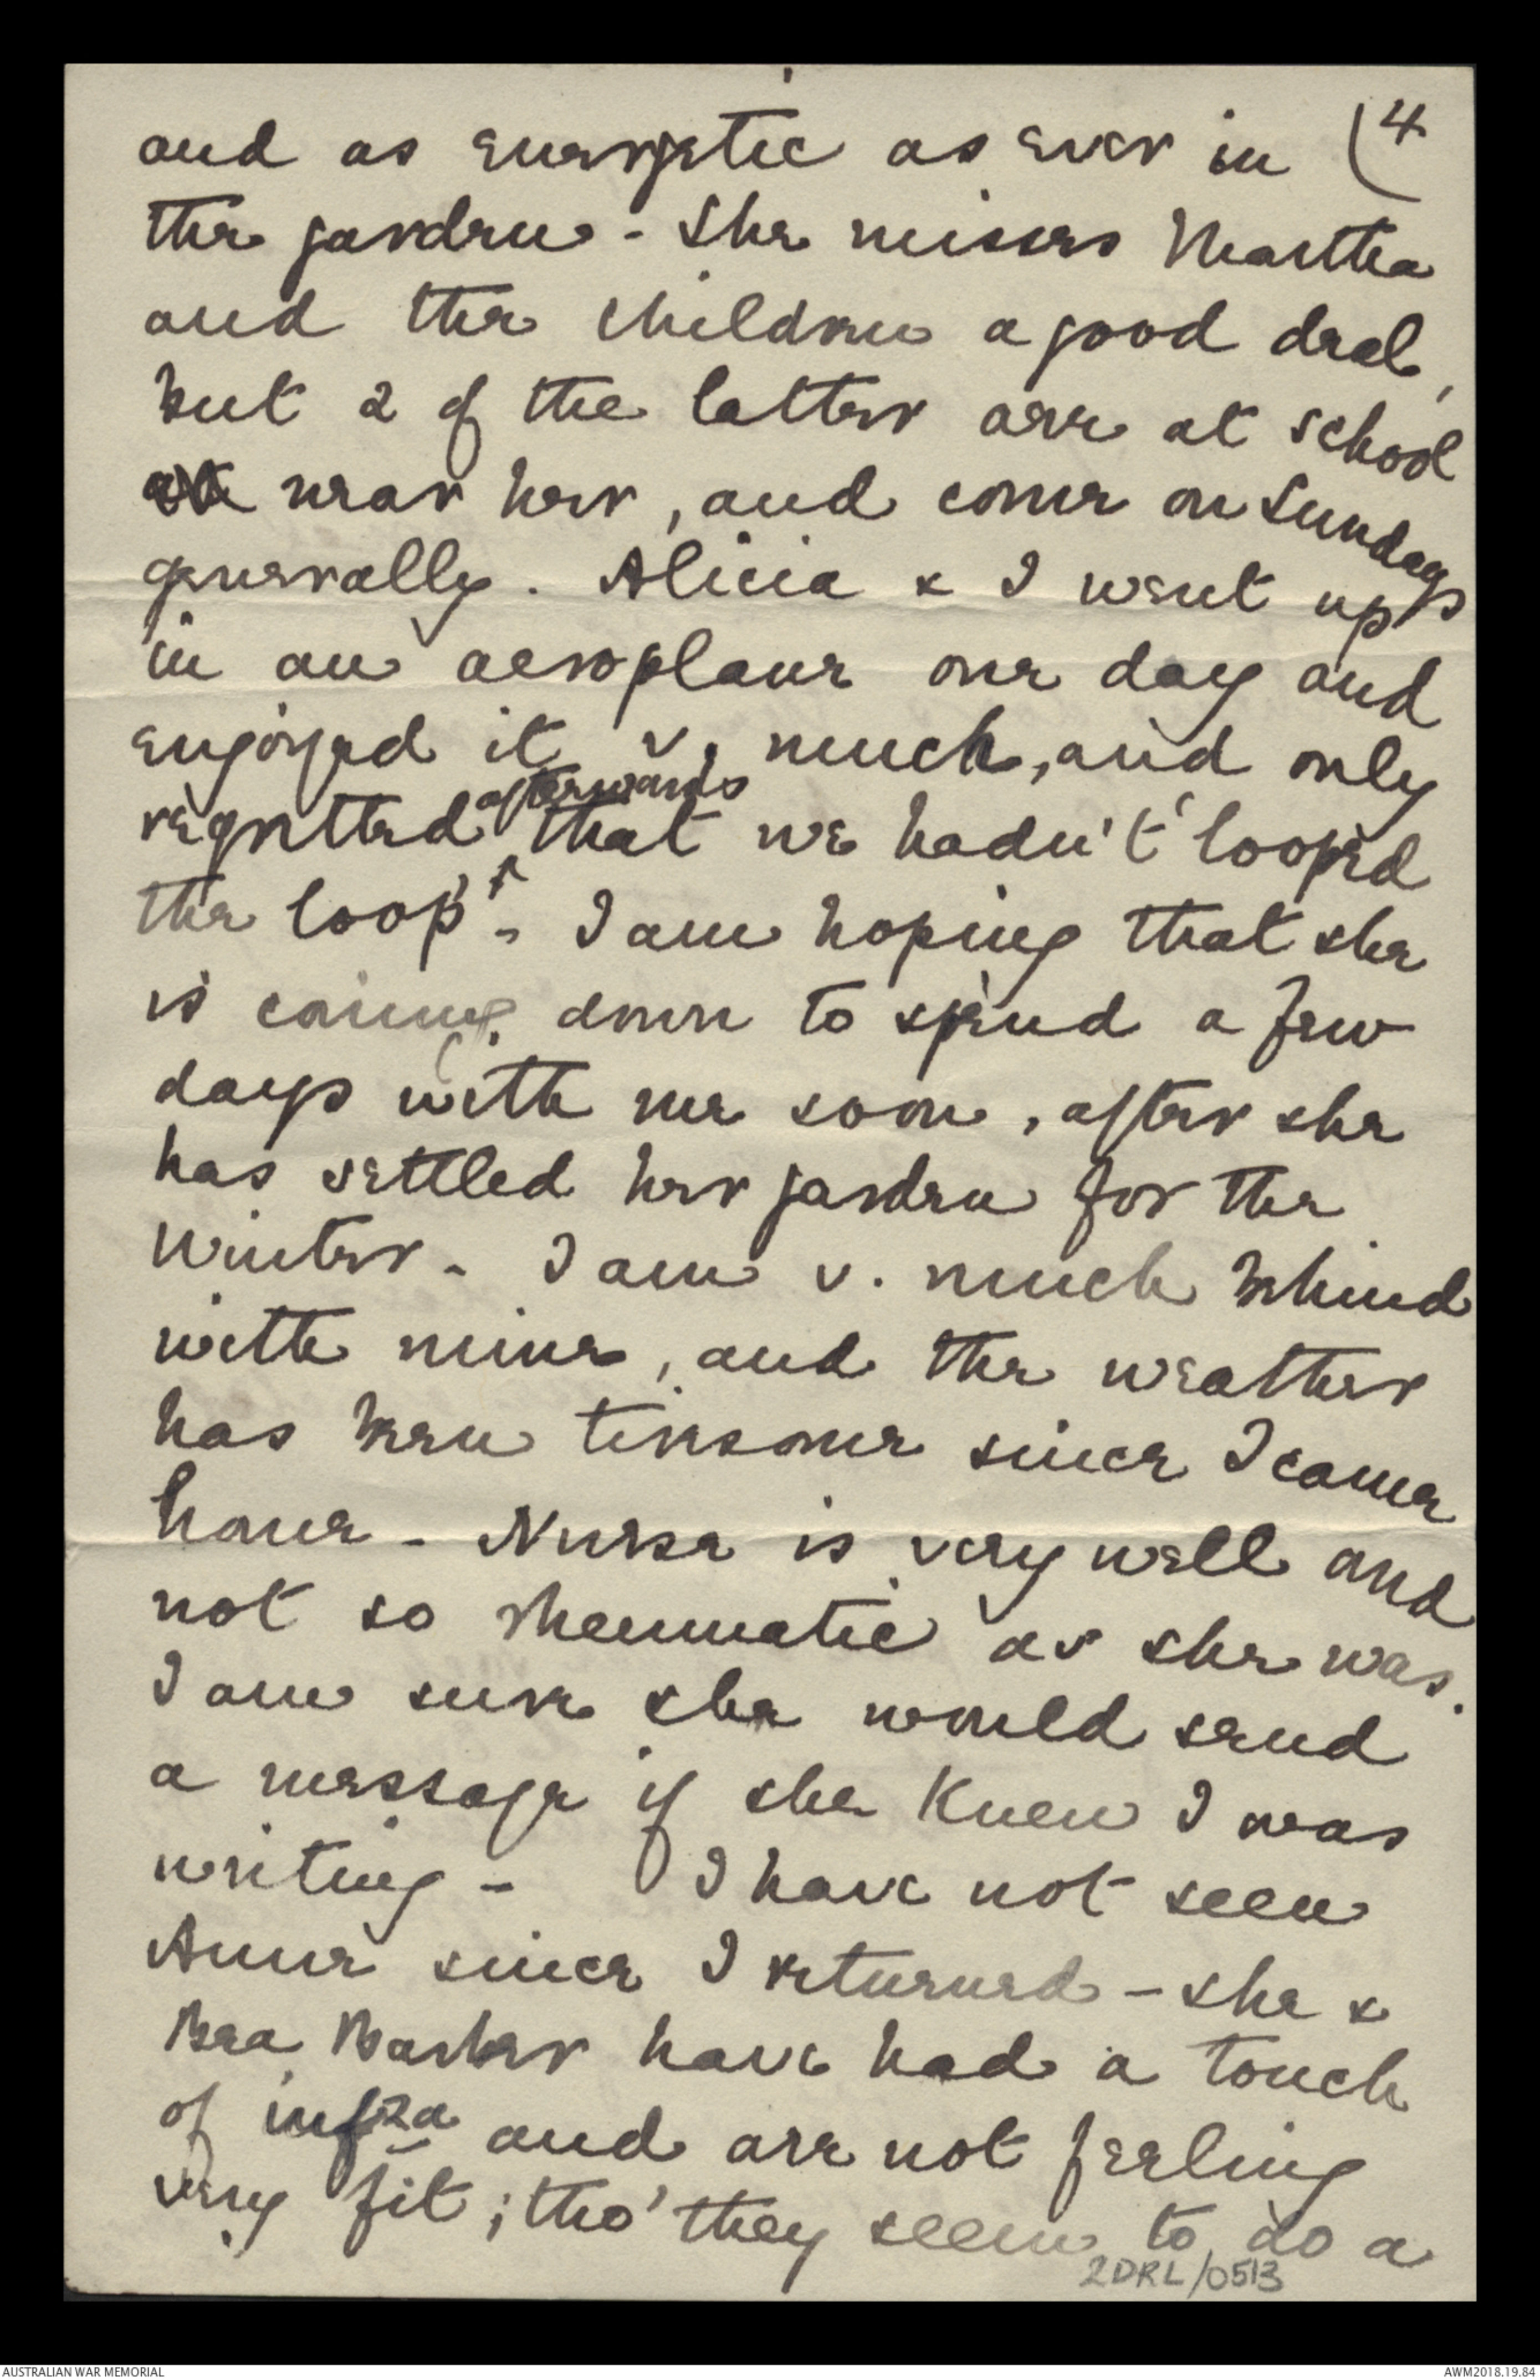 and as energetic as ever in (4
the garden - She misses Martha
and the children a good deal,
but 2 of the latter are at school
near her, and come on Sundays
generally. Alicia & I went up
in an aeroplane one day and
enjoyed it v. much, and only
regretted afterwards that we hadn't 'looped
the loop' - I am hoping that she
is coming down to spend a few
days with me soon, after she
has settled her garden for the
Winter - I am v. much behind
with mine, and the weather
has been tiresome since I came
home - Nurse is very well and
not so rheumatic as she was.
I am sure she would send
a message if she knew I was
writing - I have not seen
Anne since I returned - she &
Bea Barker have had a touch
of inflza and are not feeling
very fit; tho' they seem to do a
2DRL/0513
AUSTRALIAN WAR MEMORIAL
AWM2018.19.84